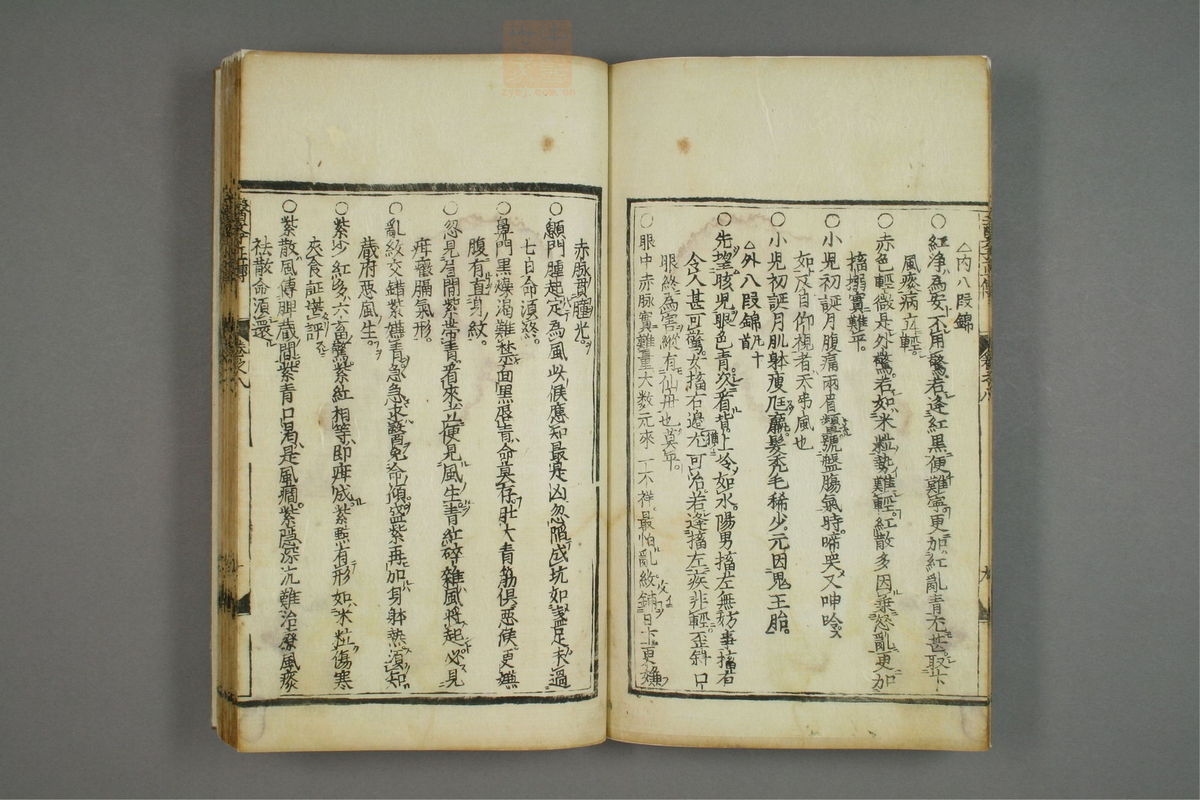 △内八段錦
○紅淨為安不用驚若逢紅黑便難寧更加紅亂青尤甚取下
風痰病立輕
○赤色輕微是外驚若如米粒勢難輕紅散多因乘怒亂更加
搐搦實難平
○小児初誕月腹痛兩眉顰號盤腸氣時啼哭又呻吟
如反自仰視者天弔風也
○小児初誕月肌躰瘦尫羸髮禿毛稀少元因鬼王胎
△外八段錦 凡十首
○先望孩児眼色青次看背上冷如水陽男搐左無妨事搐右
令人甚可驚女搐右邊尤可治若逢搐左疾非輕歪斜口
眼終為害縱有仙丹也莫平
○眼中赤脉實難量大数元來一不祥最怕亂紋鋪目上更嫌
赤脉貫瞳光
○顖門腫起定為風此候應知最是凶忽陷成坑如盞足未過
七日命須終
○鼻門黑燥渴難禁面黑唇青命莫存肚大青筋俱惡候更嫌
腹有直身紋
○忽見眉間紫帶青看來立便見風生青紅碎雜風將起必見
疳癥膈氣形
○亂紋交錯紫嫌青急急求醫免命傾盛紫再加身躰熱須知
藏府惡風生
○紫少紅多六畜驚紫紅相等即疳成紫點有形如米粒傷寒
夾食証堪評
○紫散風傳脾藏間紫青口渴是風癇紫隱深沉難治療風痰
祛散命須還